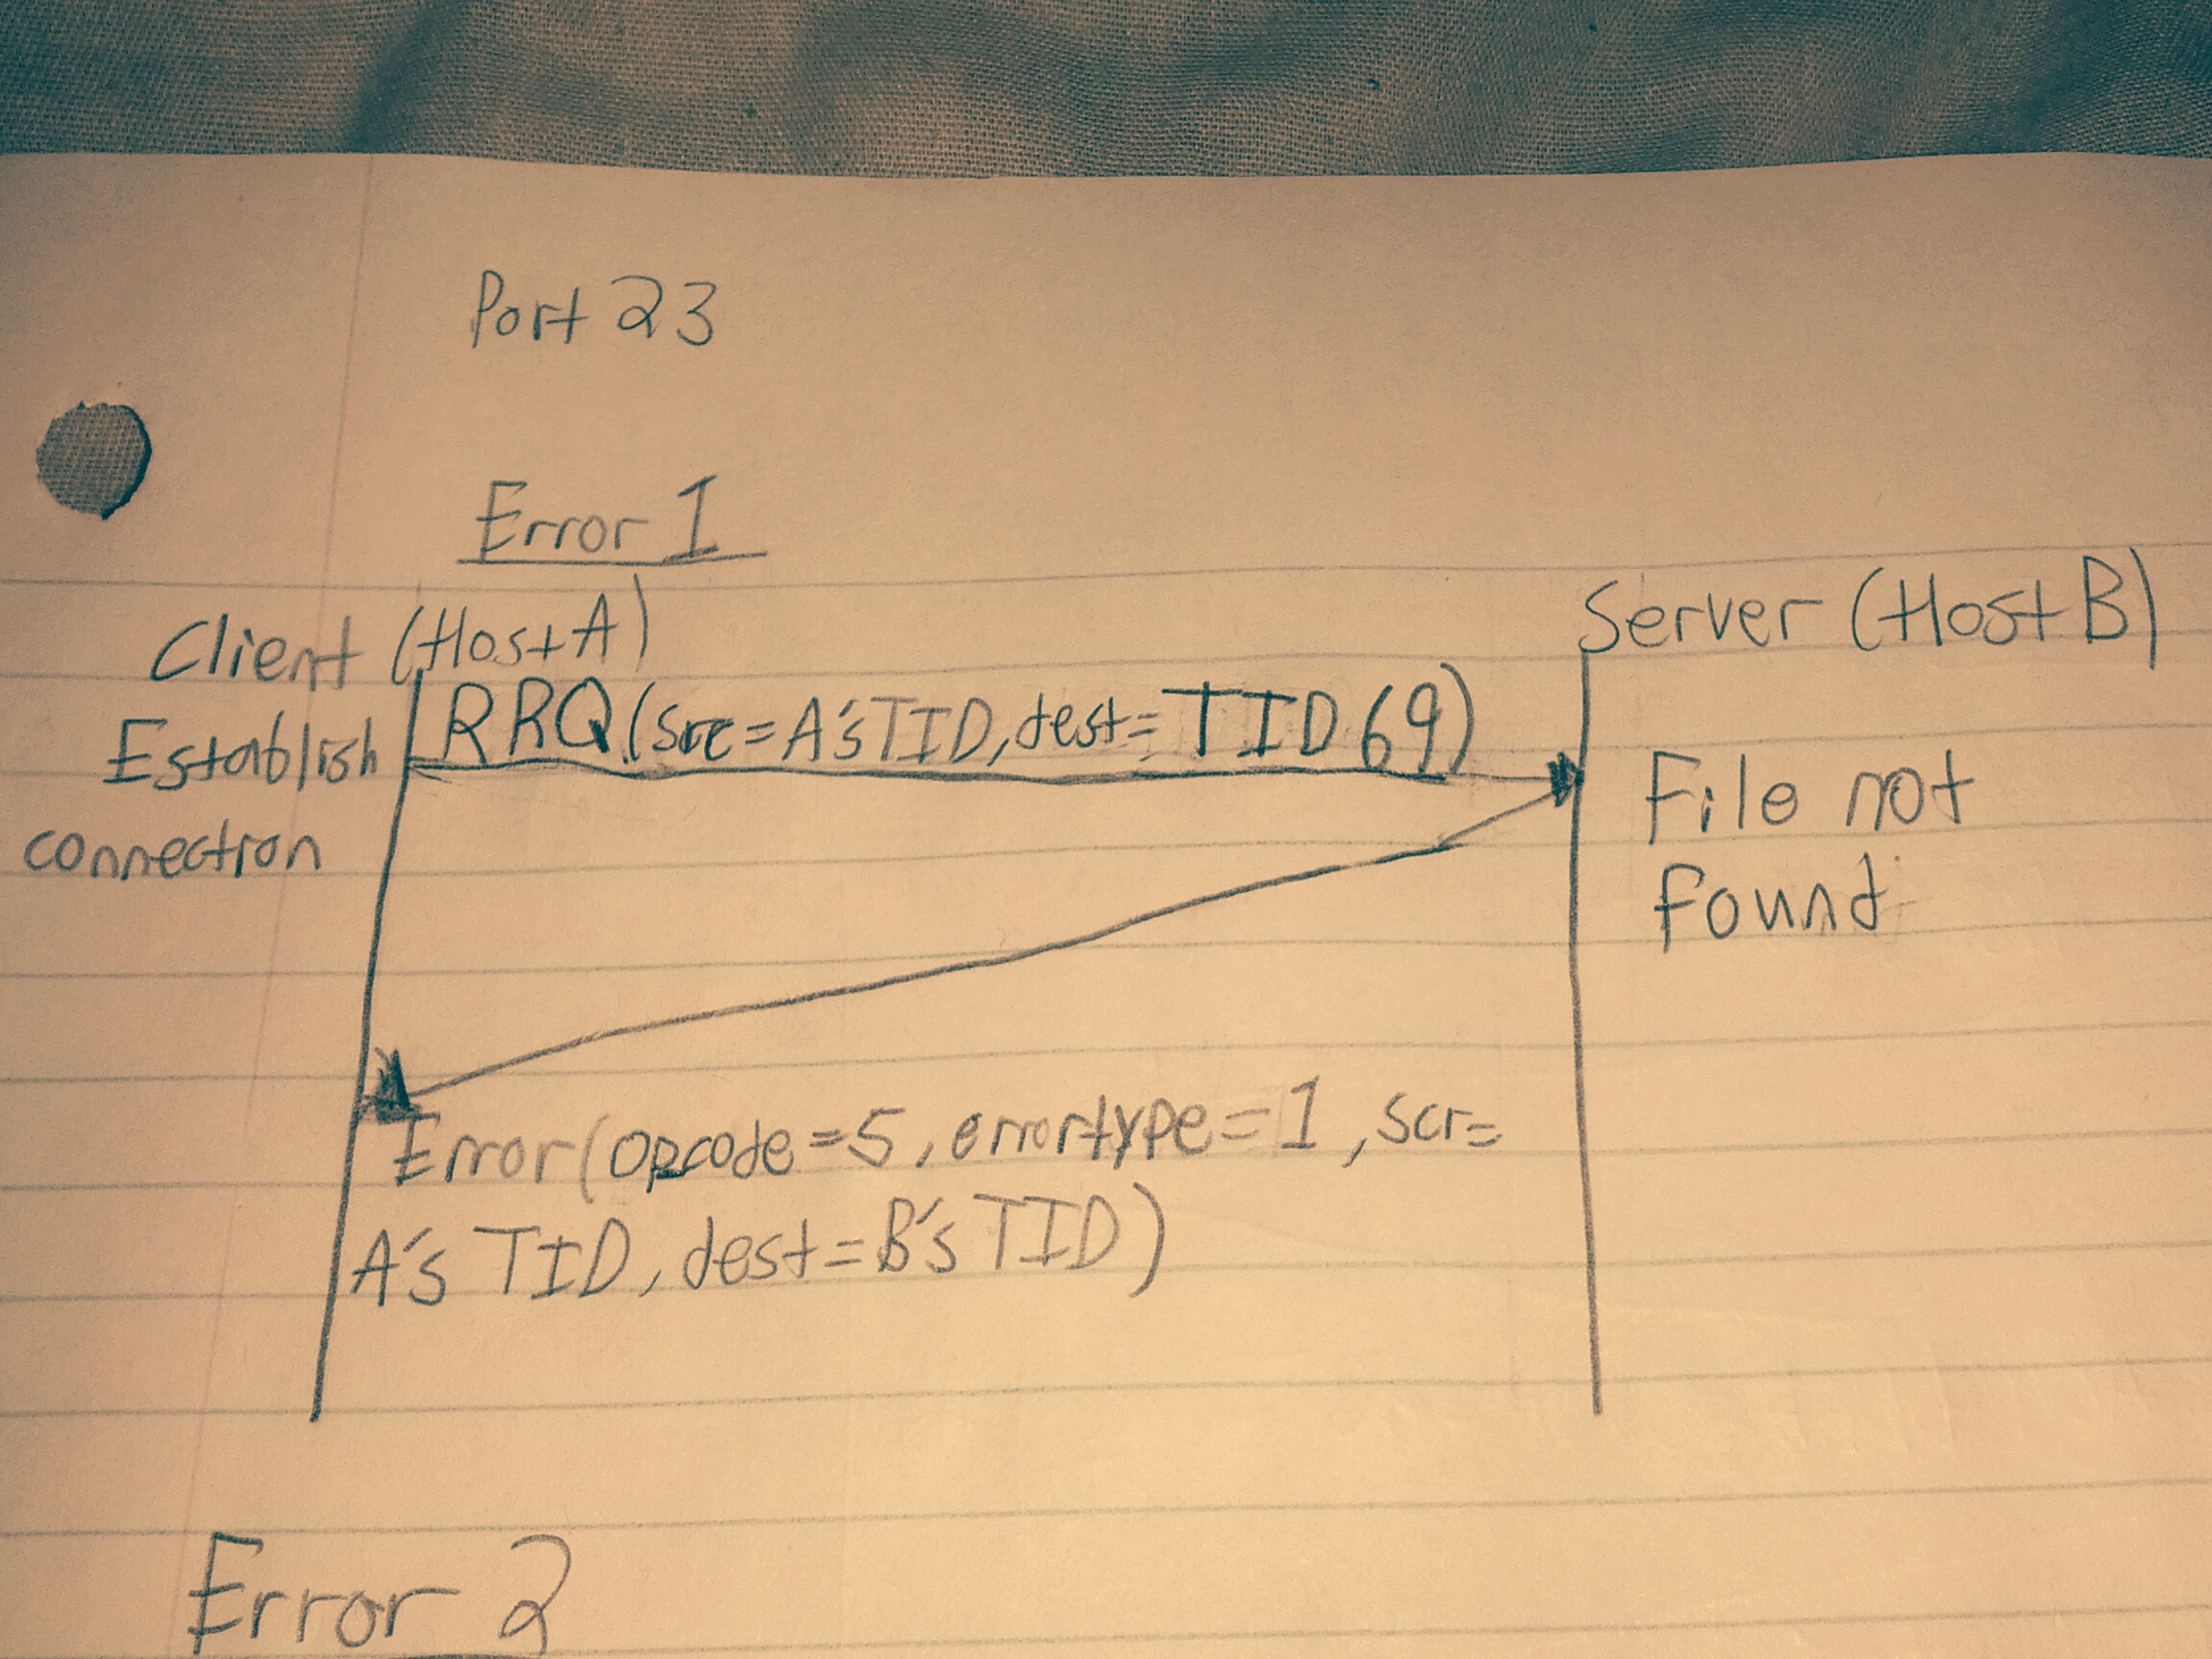 Port 23
Error 1
Client (Host A)
Server (Host B)
Establish
connection
RRQ (src = A's TID, dest = TID 69)
File not
found
Error (opcode = 5, errortype = 1, scr =
A's TID, dest = B's TID)
Error 2